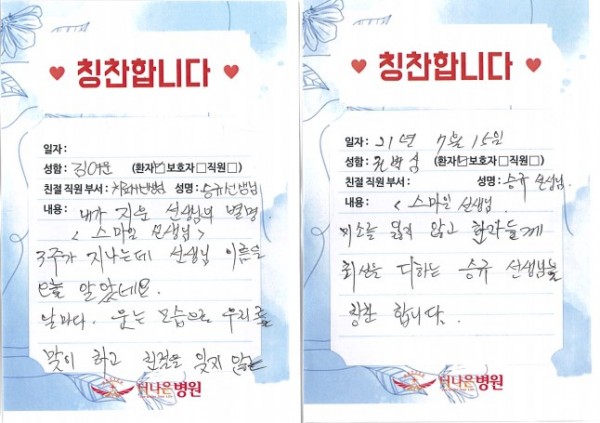 칭찬합니다
일자:
성함: (환자☑보호자☐직원☐)
친절 직원 부서: 성명: 승규선생님
내용: 내가 지은 선생님의 별명
< 스마일 선생님 >
3주가 지나는데 선생님 이름을
오늘 알았네요.
날마다. 웃는 모습으로 우리를
맞이 하고 친절을 잊지 않는
더나은병원
칭찬합니다
일자: 21년 7월 15일
성함: (환자☑보호자☐직원☐)
친절 직원 부서: 성명: 승규 선생님.
내용: < 스마일 선생님
미소를 잃지 않고 환자들께
최선을 다하는 승규 선생님을
칭찬 합니다.
더나은병원